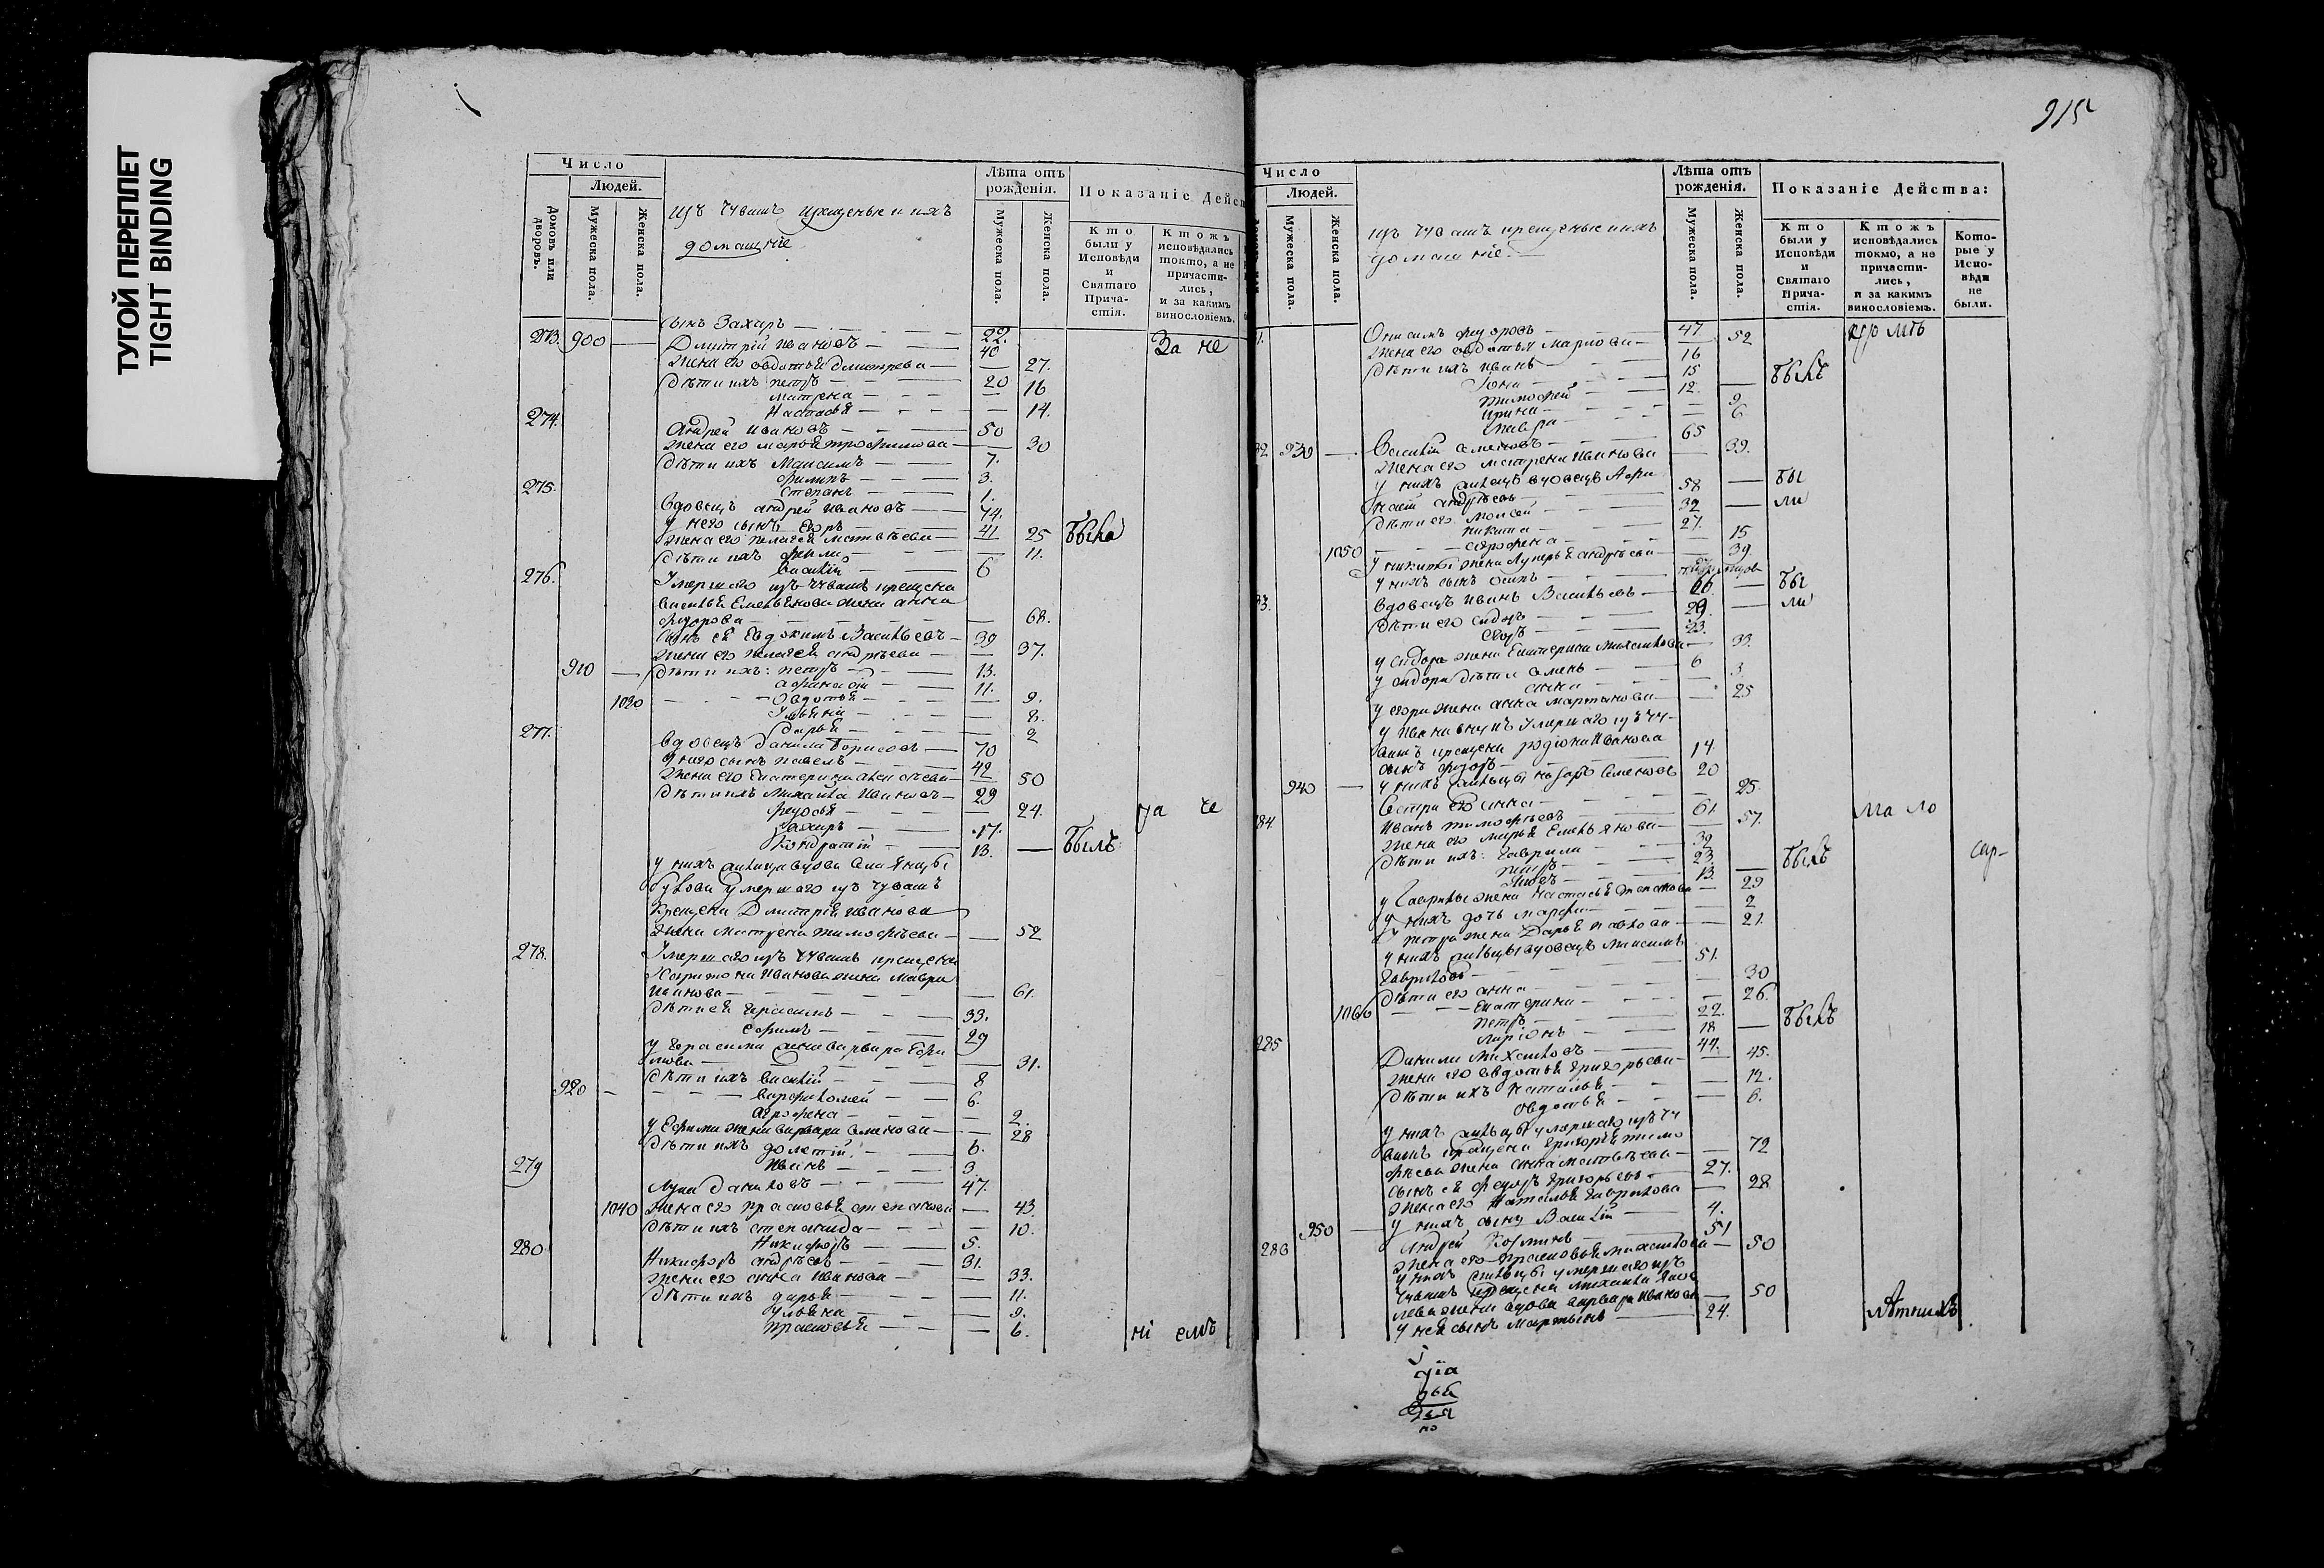 ТУГОЙ ПЕРЕПЛЕТ
TIGHT BINDING
Число
Людей.
Домовъ или дворовъ.
Мужеска пола.
Женска пола.
Изъ Чувашъ крещеные и ихъ
домашніе
Лѣта отъ рожденія.
Мужеска пола.
Женска пола.
Показаніе Дейст
Кто были у Исповѣди и Святаго Причастія.
Ктожъ исповѣдались токто, а не причастились, и за какимъ винословіемъ.
сынъ Захаръ — 22.
273. 900 — Дмитрій Ивановъ — 40 За не
жена его авдотья дмитрева — 27.
дѣти ихъ петръ — 20
матрена — 16
Настасья — 14.
274. Андрей Ивановъ — 50
жена его марья трофимова — 30
дѣти ихъ Максимъ — 7.
филипъ — 3.
Степанъ — 1.
275. вдовецъ андрей Ивановъ — 74.
у него сынъ Егоръ — 41
жена его пелагея матвѣева — 25 была
дѣти ихъ — 11.
Василій — 6
276. Умершаго изъ чувашъ крещена
василья Емельянова жена анна
федорова — 68.
сынъ ея Евдокимъ Васильевъ — 39
жена его пелагея андрѣева — 37.
910 — дѣти ихъ: петръ — 13.
афанасій — 11.
1020 — Овдотья — 9.
Ульяна — 8.
дарья — 2
277. вдовецъ данила Борисовъ — 70
у него сынъ павелъ — 42
жена его Екатерина алексѣева — 50
дѣти ихъ Михайла Ивановъ — 29
федосья — 24. за не
Захаръ — 17.
Кондратій — 13. — былъ
Умершаго изъ чувашъ
крещена Дмитрія иванова
жена матрена тимофѣева — 52
278. Умершаго изъ чувашъ крещена
Харитона Иванова жена мавра
Иванова — 61.
дѣти ея герасимъ — 33.
Ефимъ — 29
у герасима жена варвара Ефи
мова — 31.
дѣти ихъ василій — 8
920 — варфоломей — 6.
Агрофена — 2.
у Ефима жена варвара семенова — 28
дѣти ихъ — 6.
Иванъ — 3.
279 Лука даниловъ — 47.
1040 жена его прасковья степанова — 43.
дѣти ихъ степанида — 10.
Никифоръ — 5.
280 Никифоръ андрѣевъ — 31.
жена его анна иванова — 33.
дѣти ихъ дарья — 11.
Ульяна — 9.
прасковья — 6. ні емъ
915
Число
Людей.
Мужеска пола.
Женска пола.
изъ Чувашъ крещеные и ихъ
домашніе
Лѣта отъ рожденія.
Мужеска пола.
Женска пола.
Показаніе Действа:
Кто были у Исповѣди и Святаго Причастія.
Ктожъ исповѣдались токмо, а не причастились, и за какимъ винословіемъ.
Которые у Исповѣди не были.
Онисимъ федоровъ — 47
жена его авдотья маркова — 52
дѣти ихъ иванъ — 16
Іона — 15 былъ
тимофей — 12.
ирина — 9
мавра — 6.
930 — Василій семеновъ — 65
жена его матрена иванова — 39.
58 — бы
дѣти его моисей — 32 — ли
никита — 27.
1050 — агрофена — 15
39.
у нихъ сынъ осипъ —
вдовецъ иванъ Васильевъ — 66. — бы
дѣти его сидоръ — 29. — ли
Егоръ — 23.
у сидора жена Екатерина михайлова — 33.
у сидора дѣти семенъ — 6
анна — 3.
у егора жена анна мартынова — 25
у ивана внукъ умершаго изъ чу-
вашъ крещена родіона Иванова
сынъ федоръ — 14.
940 — 20
сестра его анна — 25.
284. Иванъ тимофѣевъ — 61 ма ло
жена его марья Емельянова — 57.
дѣти ихъ: гаврила — 32
петръ — 23. — былъ
13.
у гаврилы жена настасья степанова — 29
у нихъ дочь марфа — 2
у петра жена дарья павлова — 21.
гавриловъ — 51.
дѣти его анна — 30
1066 — Екатерина — 26.
петръ — 22. былъ
ларіонъ — 18 —
285 Данила михайловъ — 44.
жена его авдотья григорьева — 45.
дѣти ихъ наталья — 12.
овдотья — 6.
вашъ крещена григорья тимо
фѣева жена анна матвѣева — 72
сынъ ея федоръ григорьевъ — 27.
жена его Наталья гаврилова — 28
950 — у нихъ сынъ Василій — 4.
286 Андрей Козминъ — 51
жена его прасковья михайлова — 50
чувашъ крещена михаила
жена вдова варвара иванова — 50
у нея сынъ мартынъ — 24. лѣтнихъ